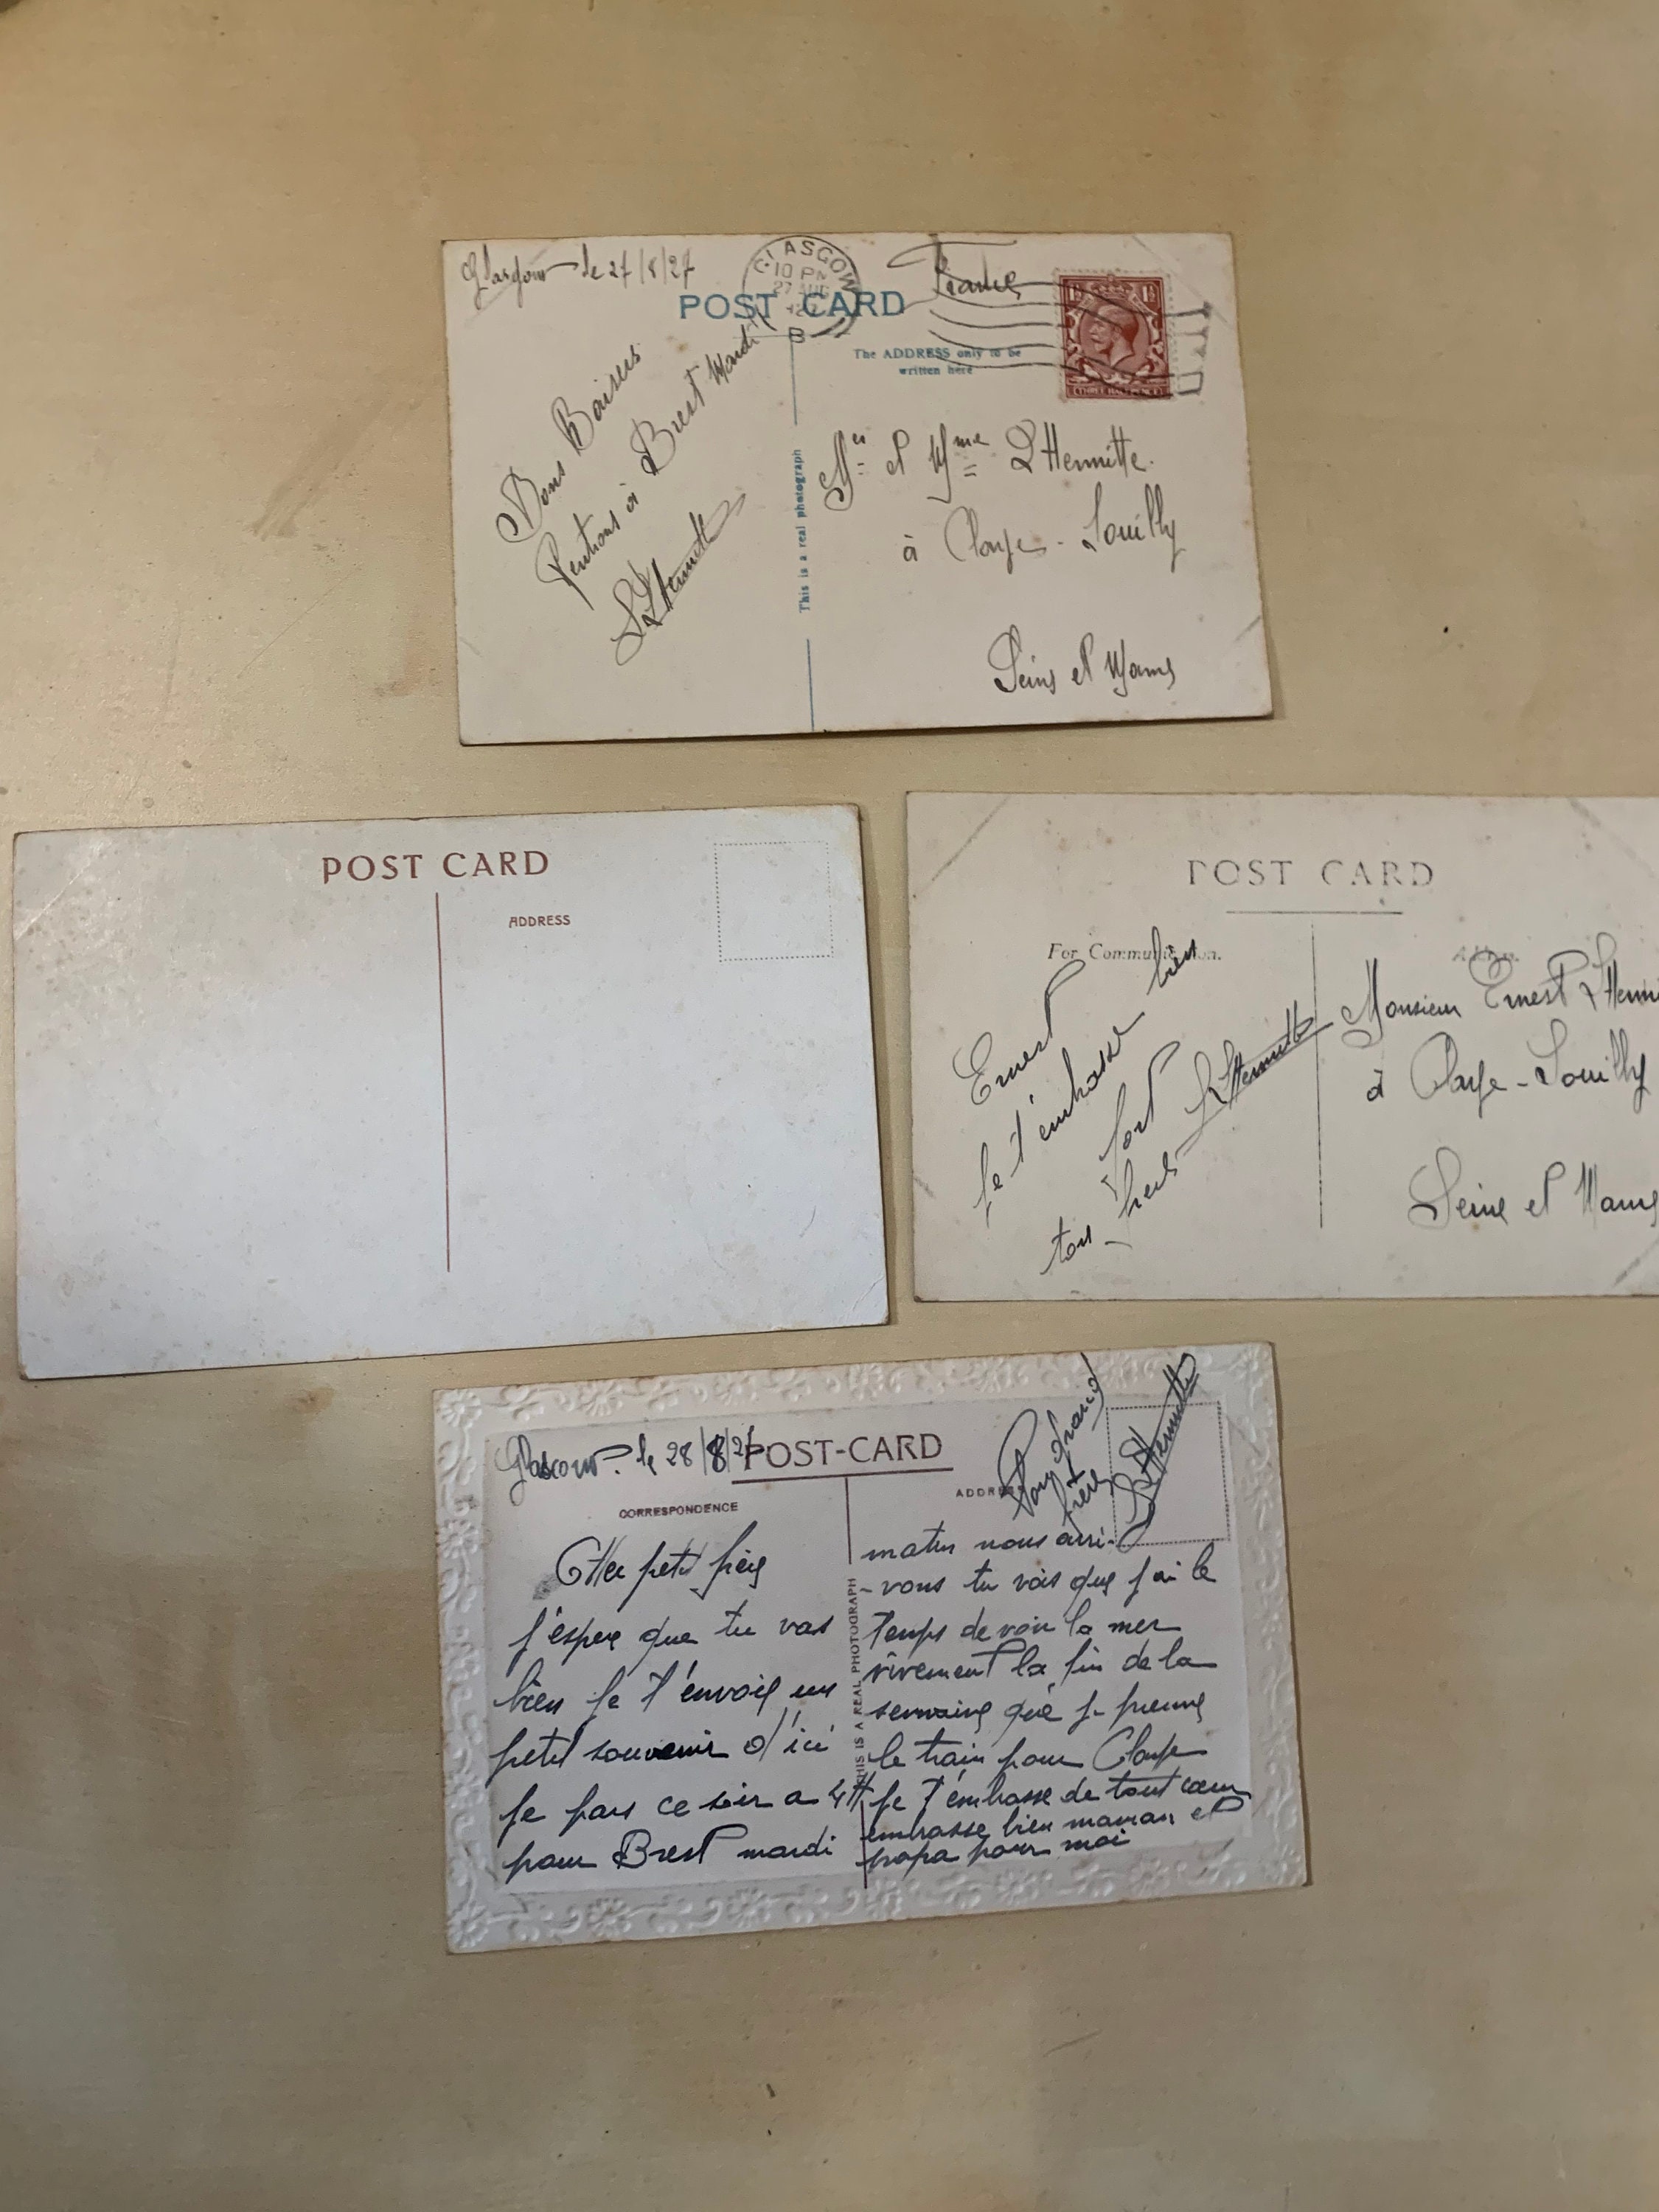 Glasgow le 27/8/27
GLASGOW
10 PM
27 AUG
B
France
POST CARD
The ADDRESS only to be
written here
Bons Baisers
à Brest Mardi
L'Hermitte
This is a real photograph
Mr et Mme L'Hermitte.
à Claye-Souilly
Seine et Marne
POST CARD
ADDRESS
POST CARD
For Communication.
Ernest
je t'embrasse bien
fort
ton frère L'Hermitte
Monsieur Ernest L'Hermi
à Claye-Souilly
Seine et Marne
Glascow. le 28/8/27
POST-CARD
CORRESPONDENCE
ADDRESS
Ton grand
frère
L'Hermitte
THIS IS A REAL PHOTOGRAPH
Cher petit frère
j'espere que tu vas
bien je t'envoie un
petit souvenir d'ici
je pars ce soir a 4H
pour Brest mardi
matin nous arri-
-vons tu vois que j'ai le
temps de voir la mer
vivement la fin de la
semaine que je prenne
le train pour Claye
je t'embrasse de tout cœur
embrasse bien maman et
papa pour moi